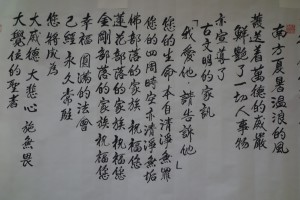 南方夏暑溫浪的風
護送着萬德的威嚴
鮮艷了一切人事物
亦定尊了
古文明的家訓
「我愛他 請告訴他」
您的生命 本自清淨無罪
您的四周時空亦清淨無垢
佛部落的家族 祝福您
蓮花部落的家族 祝福您
金剛部落的家族 祝福您
幸福圓滿的法會
已經永久常駐
您將成為
大威德 大悲心 施無畏
大覺位的聖者